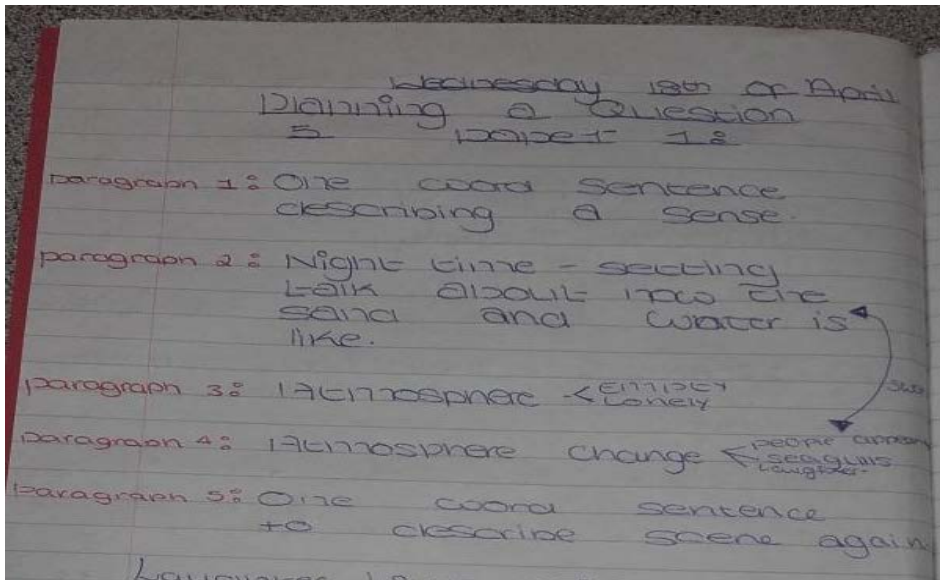 Wednesday 18th of April
Planning a Question
5 paper 1:
paragraph 1: One word sentence
describing a sense.
paragraph 2: Night time - setting
talk about how the
sand and water is
like.
paragraph 3: Atmosphere < empty
lonely
paragraph 4: Atmosphere change < people appear
seagulls
laughter
paragraph 5: One word sentence
to describe scene again